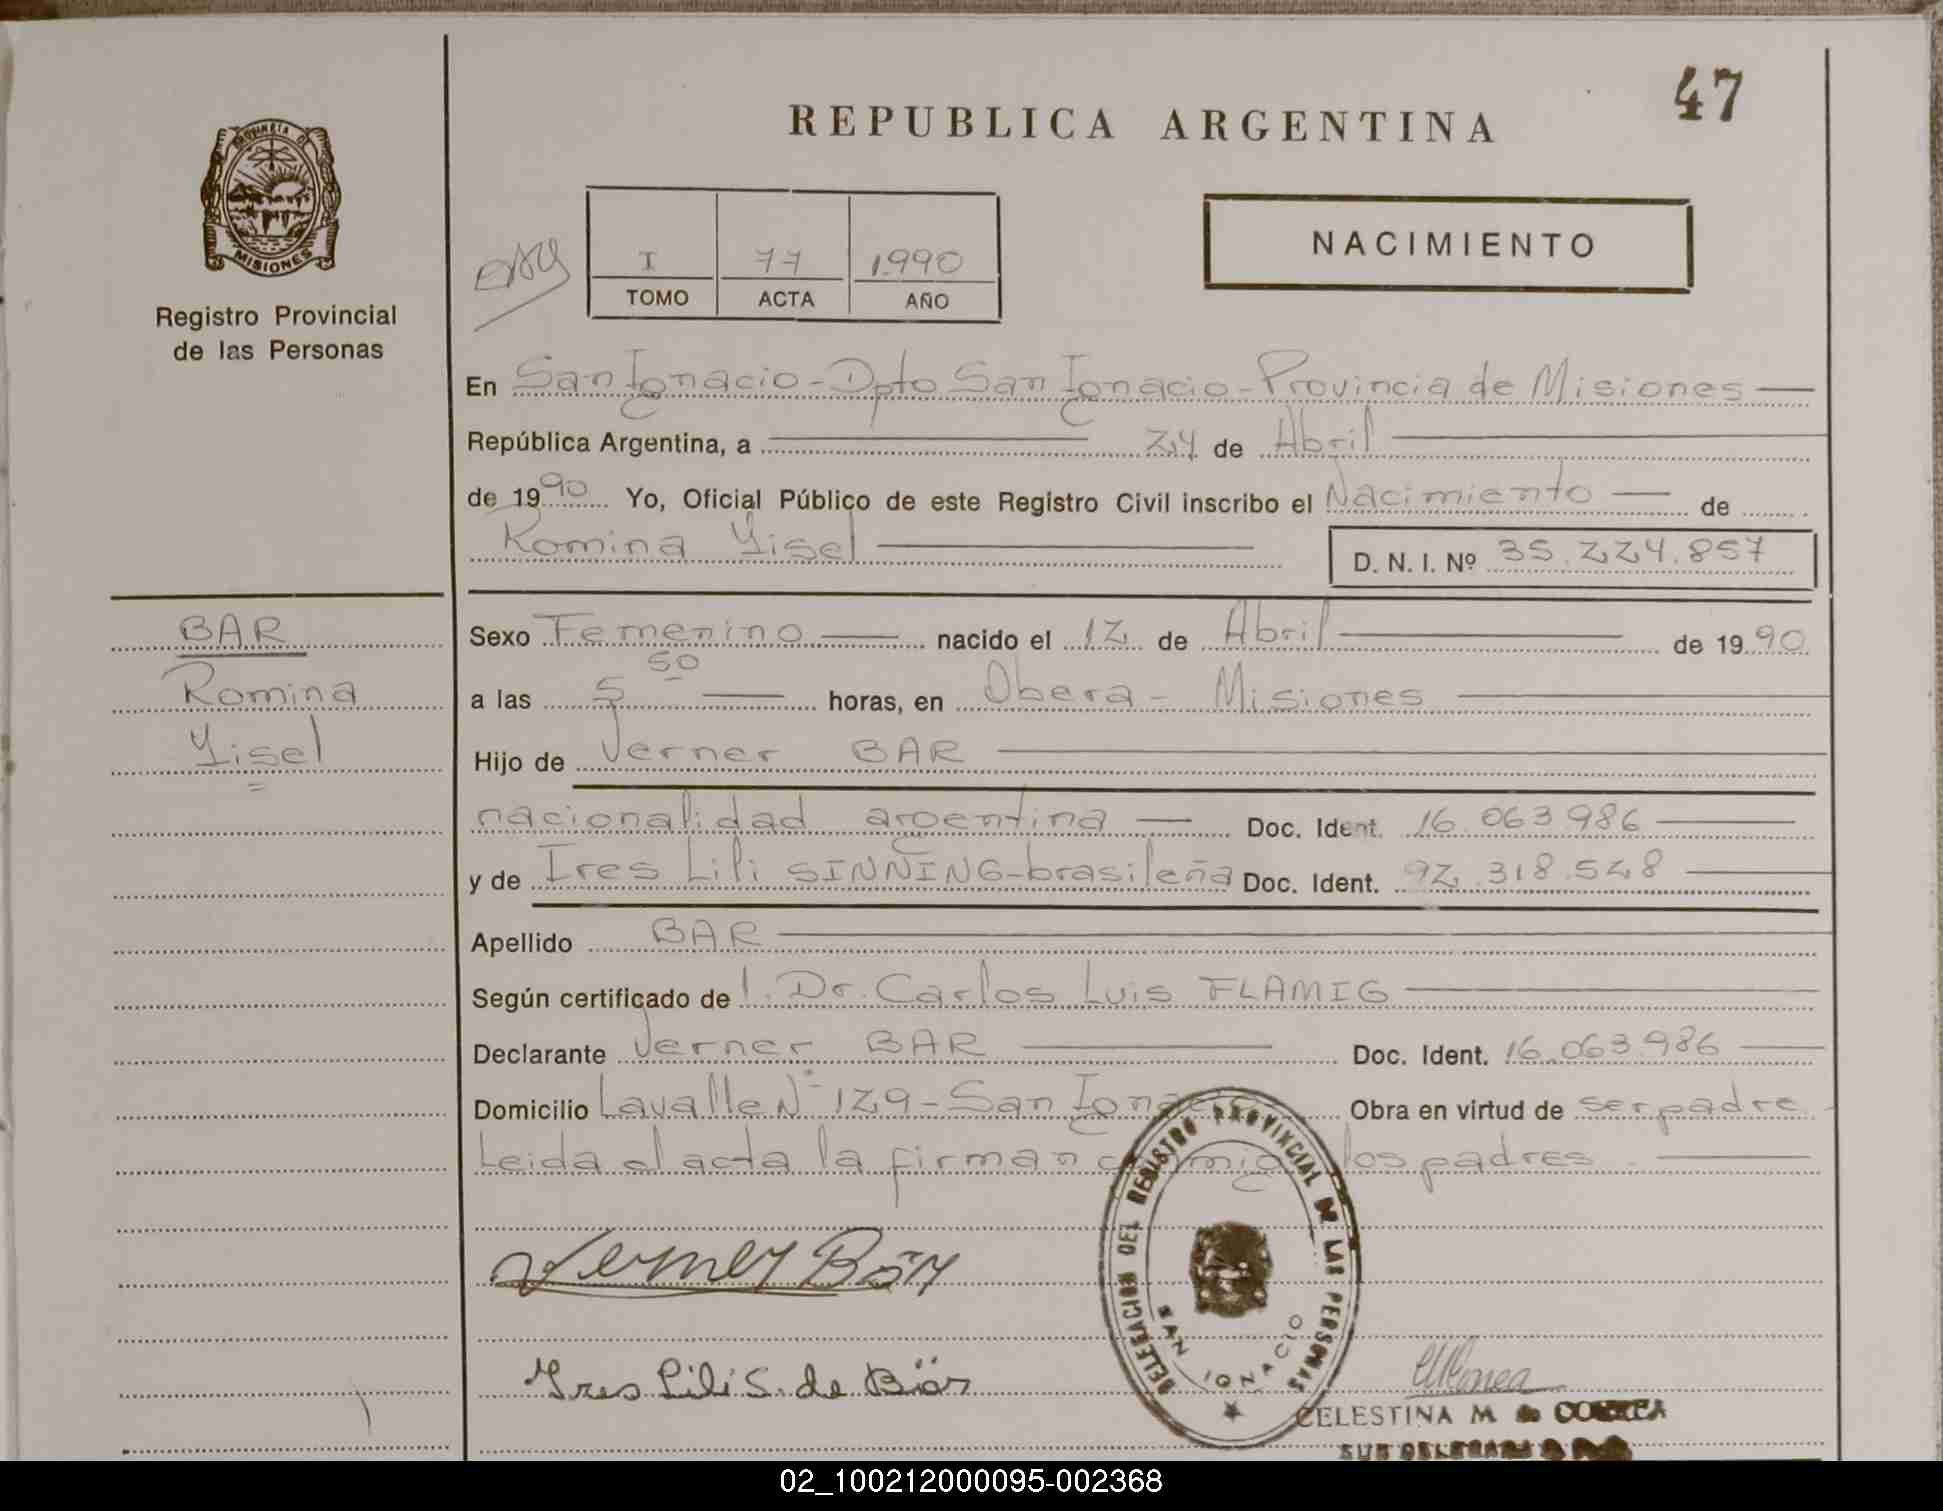 47
REPUBLICA ARGENTINA
PROVINCIA DE
MISIONES
Registro Provincial
de las Personas
I 77 1990
TOMO ACTA AÑO
NACIMIENTO
En San Ignacio - Dpto San Ignacio - Provincia de Misiones
República Argentina, a 24 de Abril
de 1990 Yo, Oficial Público de este Registro Civil inscribo el Nacimiento de
Romina Yisel
D. N. I. Nº 35.224.857
BAR
Romina
Yisel
Sexo Femenino nacido el 12 de Abril de 1990
a las 5 50 horas, en Obera - Misiones
Hijo de Verner BAR
nacionalidad argentina Doc. Ident. 16.063.986
y de Ires Lili SINNING - brasileña Doc. Ident. 92.318.548
Apellido BAR
Según certificado de l. Dr. Carlos Luis FLAMIG
Declarante Verner BAR Doc. Ident. 16.063.986
Domicilio Lavalle Nº 129 - San Ignacio Obra en virtud de ser padre
Leida el acta la firman conmigo los padres.
DELEGACION DEL REGISTRO PROVINCIAL DE LAS PERSONAS
SAN IGNACIO
Verner Bär
Ires Lili S. de Bär
CELESTINA M. de CORREA
SUB DELEGADA
02_100212000095-002368